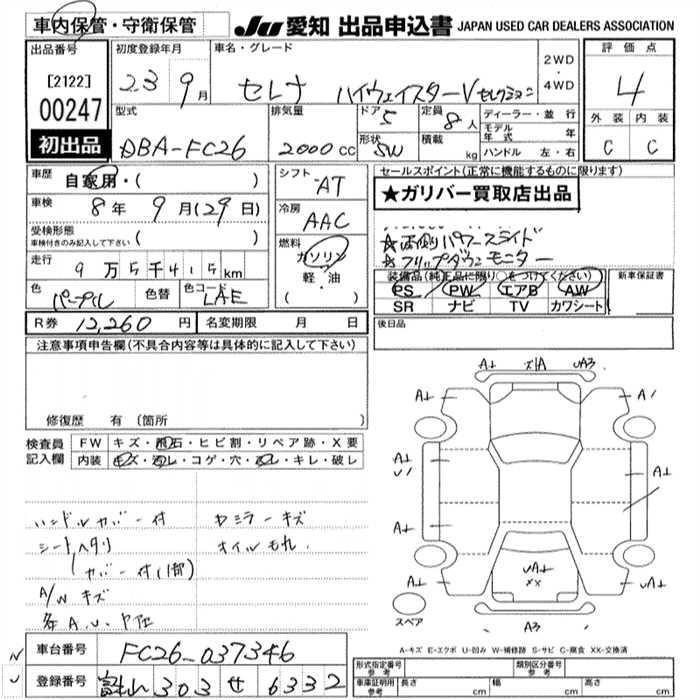 車内保管・守衛保管
JU 愛知 出品申込書 JAPAN USED CAR DEALERS ASSOCIATION
出品番号 初度登録年月 車名・グレード 2WD・4WD 評価点
[2122] 23 9月 セレナ ハイウェイスターV セレクション 4
00247 型式 排気量 ドア 定員 ディーラー・並行 外装 内装
DBA-FC26 2000cc 5 8人 モデル年式 年 C C
初出品 形状 SW 積載 kg ハンドル 左・右
車歴 自家用・( ) シフト AT セールスポイント(正常に機能するものに限ります)
★ガリバー買取店出品
車検 8年 9月(29日) 冷房 AAC
受検形態 車検付きのみ記入して下さい ( )
★両側パワースライド
★フリップダウンモニター
走行 9万5千415km 燃料 ガソリン 軽・油 ( )
装備品(純正品に限り○をつけてください) 新車保証書
PS PW エアB AW
SR ナビ TV カワシート
色 パープル 色替 色コード LAE
R券 12,260円 名変期限 月 日 後日品
注意事項申告欄(不具合内容等は具体的に記入して下さい)
修復歴 有 (箇所
検査員記入欄 FW キズ・飛石・ヒビ割・リペア跡・X要
内装 キズ・汚レ・コゲ・穴・スレ・キレ・破レ
ハンドルカバー付 ミラーキズ
シートヘタリ オイルもれ
カバー付(1部)
A/W キズ
各A.U.
A1 A1 UA3
A1 A1
A1 A1
U1
A1
UA1 UA1
XX
A3
スペア
A-キズ E-エクボ U-凹み W-補修跡 S-サビ C-腐食 XX-交換済
車台番号 FC26-037346
登録番号 富山 303 せ 6332
形式指定番号 参考 類別区分番号 参考
車庫証明用 参考 長さ cm 幅 cm 高さ cm